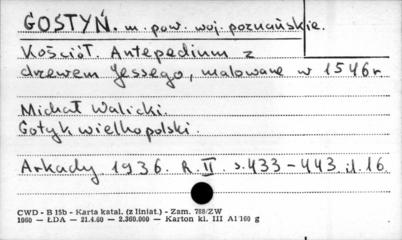 GOSTYŃ. m. pow. woj. poznańskie.
Kościół. Antepedium z
drzewem Jessego, malowane w 1546 r
Michał Walicki.
Gotyk wielkopolski.
Arkady 1936. R. II. s. 433-443 il. 16.
CWD - B 15b - Karta katal. (z liniat.) - Zam. 788/ZW
1060 — ŁDA — 21.4.60 — 2.360.000 — Karton kl. III A1 160 g